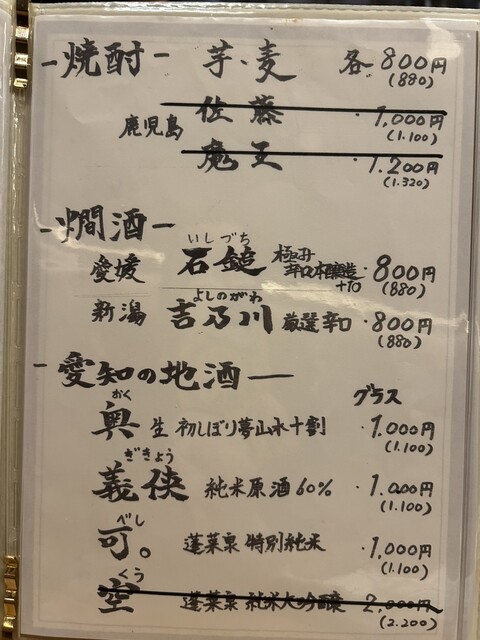 -焼酎- 芋、麦 各 800円
(880)
鹿児島 佐藤 ・1,000円
(1.100)
魔王 ・1.200円
(1.320)
-燗酒-
いしづち
愛媛 石鎚 極辛口本醸造+10 ・800円
(880)
よしのがわ
新潟 吉乃川 厳選辛口 ・800円
(880)
-愛知の地酒-
グラス
おく
奥 生 初しぼり夢山水十割 ・1.000円
(1.100)
ぎきょう
義侠 純米原酒60% ・1.000円
(1.100)
べし
可。 蓬莱泉 特別純米 ・1,000円
(1.100)
くう
空 蓬莱泉 純米大吟醸 2,000円
(2.200)